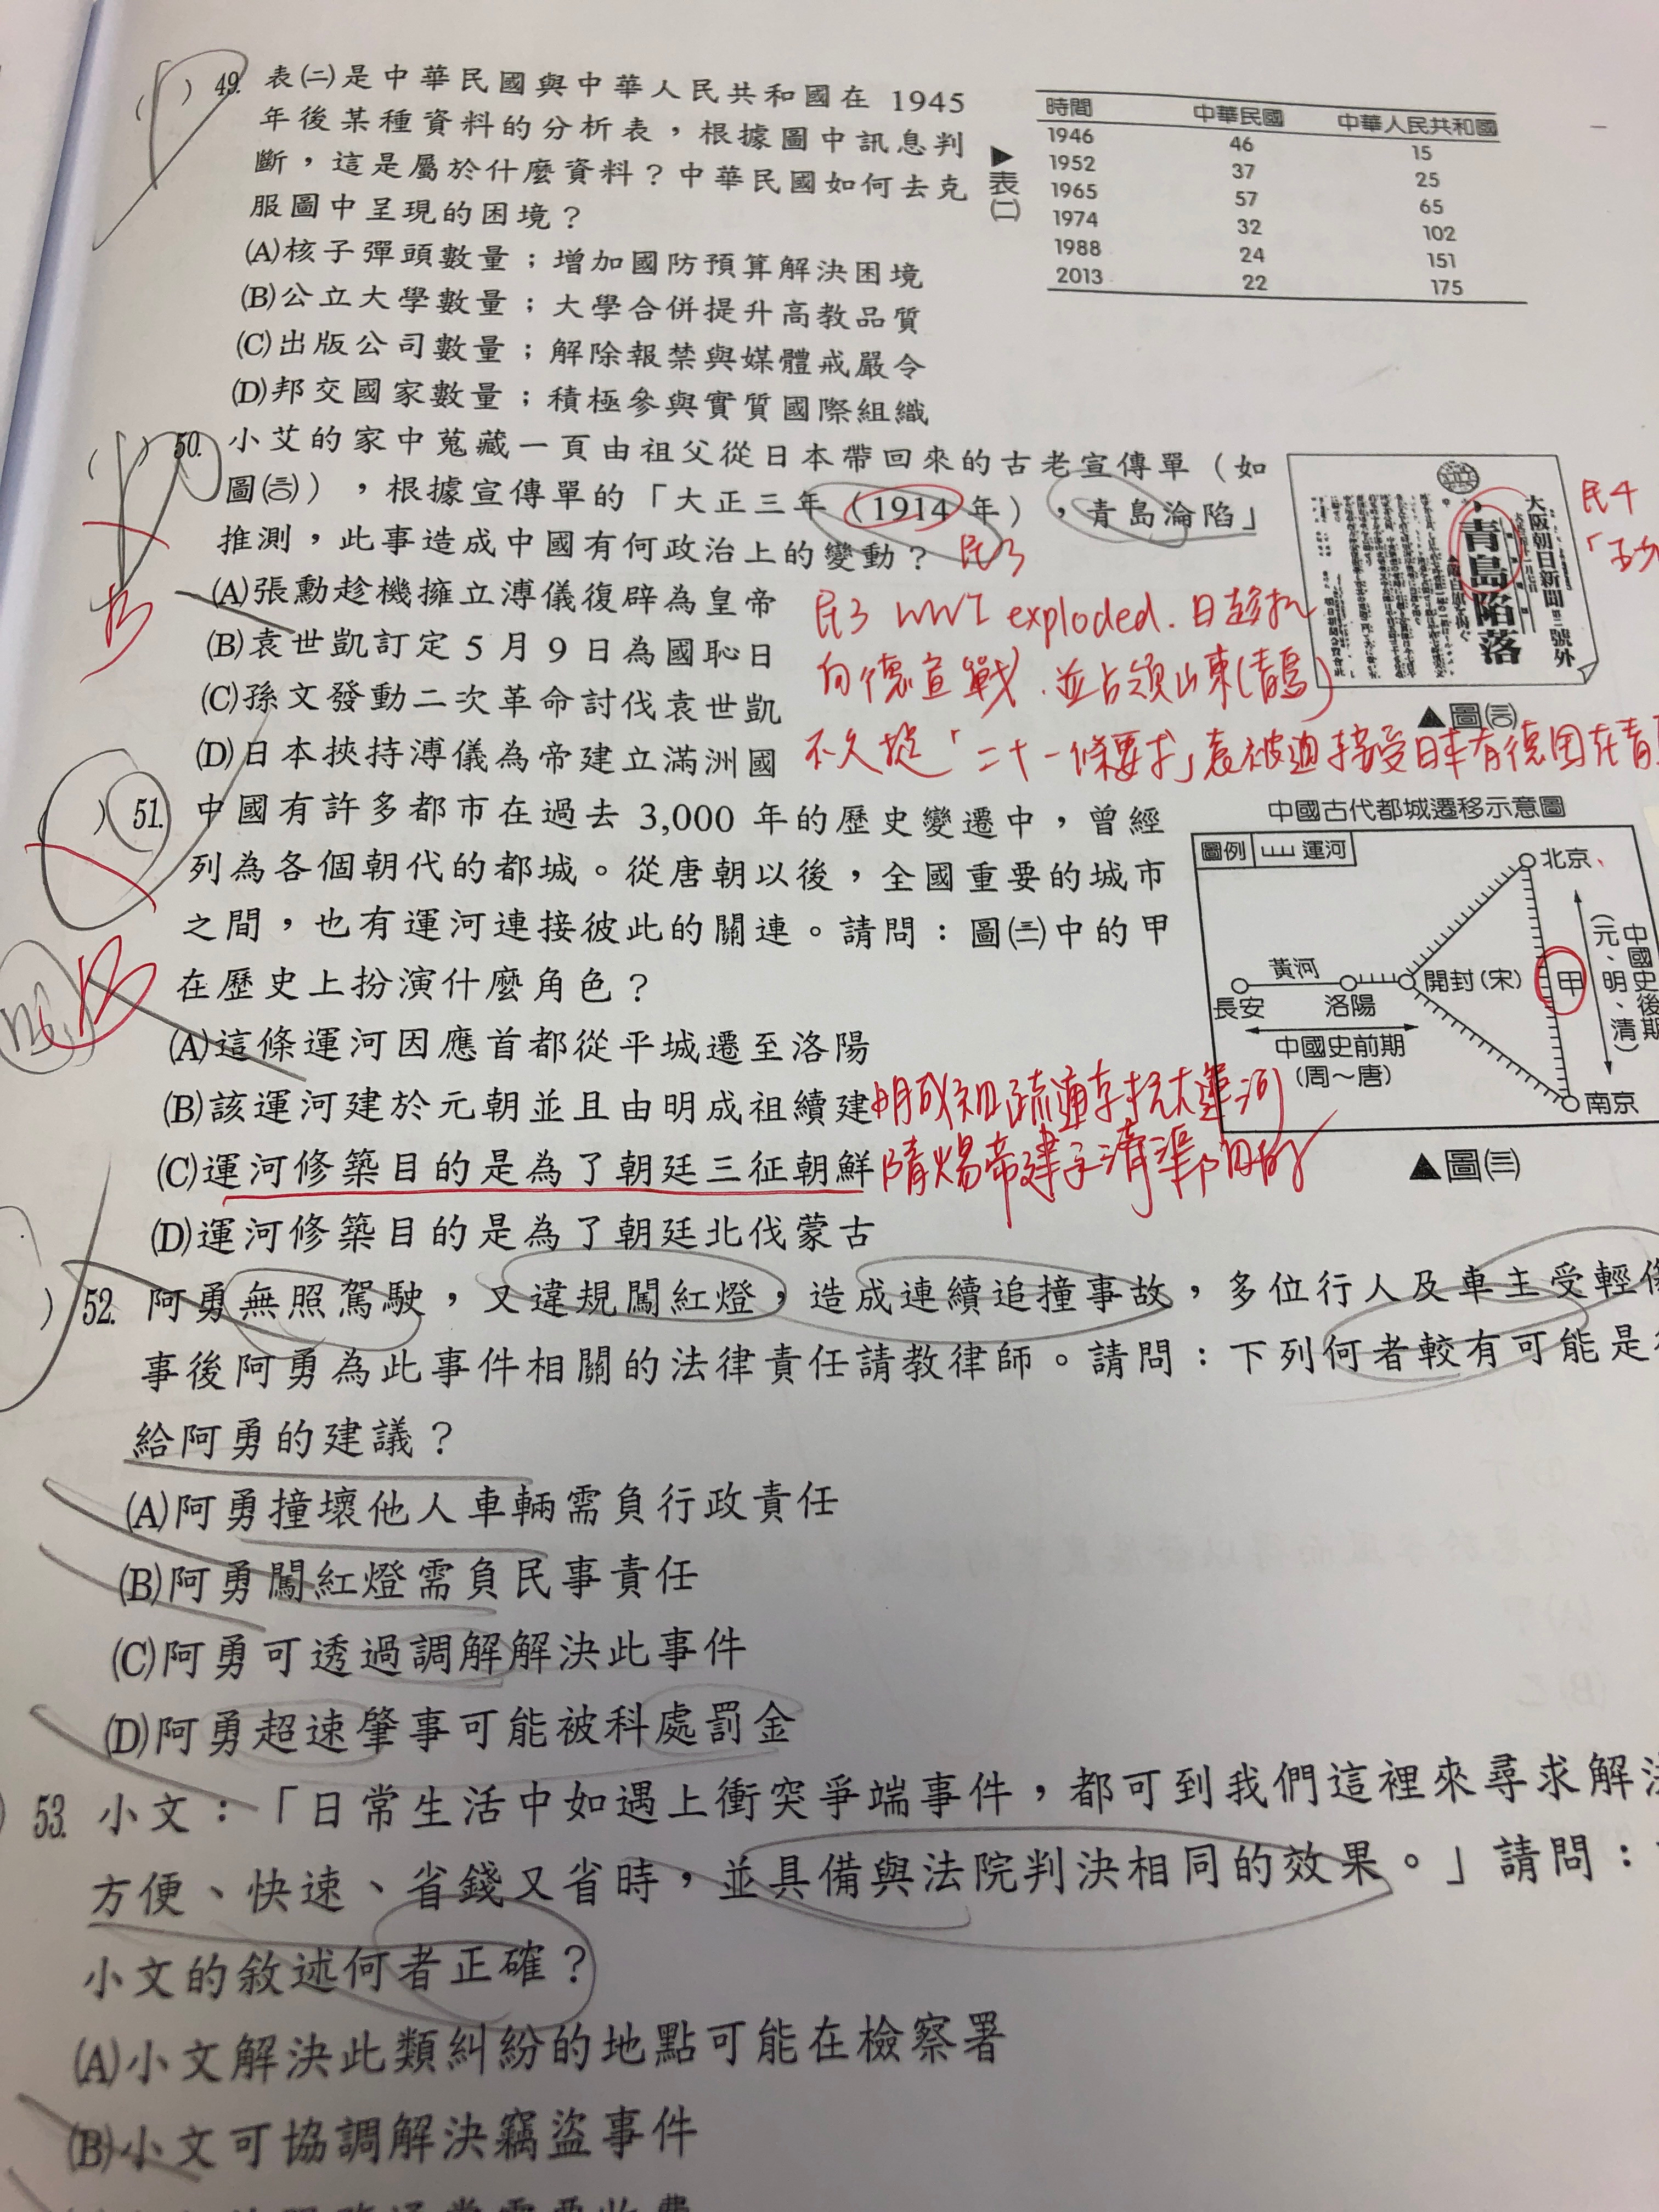 ( ) 49. 表㈡是中華民國與中華人民共和國在 1945
年後某種資料的分析表，根據圖中訊息判
斷，這是屬於什麼資料？中華民國如何去克
服圖中呈現的困境？
(A)核子彈頭數量；增加國防預算解決困境
(B)公立大學數量；大學合併提升高教品質
(C)出版公司數量；解除報禁與媒體戒嚴令
(D)邦交國家數量；積極參與實質國際組織
▶表㈡
時間 中華民國 中華人民共和國
1946 46 15
1952 37 25
1965 57 65
1974 32 102
1988 24 151
2013 22 175
( ) 50. 小艾的家中蒐藏一頁由祖父從日本帶回來的古老宣傳單（如
圖㈩），根據宣傳單的「大正三年（1914 年），青島淪陷」
推測，此事造成中國有何政治上的變動？
民3
(A)張勳趁機擁立溥儀復辟為皇帝
(B)袁世凱訂定 5 月 9 日為國恥日
(C)孫文發動二次革命討伐袁世凱
(D)日本挾持溥儀為帝建立滿洲國
民3 WWI exploded. 日趁机
向德宣戰，並占領山東(青島)
不久提「二十一條要求」袁被迫接受日本有德国在青
大阪朝日新聞 第二號外
青島陷落
民4
▲圖
( ) 51. 中國有許多都市在過去 3,000 年的歷史變遷中，曾經
列為各個朝代的都城。從唐朝以後，全國重要的城市
之間，也有運河連接彼此的關連。請問：圖㈢中的甲
在歷史上扮演什麼角色？
(A)這條運河因應首都從平城遷至洛陽
(B)該運河建於元朝並且由明成祖續建
明成祖疏通京杭大運河
(C)運河修築目的是為了朝廷三征朝鮮
隋煬帝建
(D)運河修築目的是為了朝廷北伐蒙古
中國古代都城遷移示意圖
圖例 運河
北京
黃河
長安 洛陽 開封(宋) 甲
中國史前期
(周～唐)
中國史後期
(元、明、清)
南京
▲圖㈢
) 52. 阿勇無照駕駛，又違規闖紅燈，造成連續追撞事故，多位行人及車主受輕傷
事後阿勇為此事件相關的法律責任請教律師。請問：下列何者較有可能是
給阿勇的建議？
(A)阿勇撞壞他人車輛需負行政責任
(B)阿勇闖紅燈需負民事責任
(C)阿勇可透過調解解決此事件
(D)阿勇超速肇事可能被科處罰金
) 53. 小文：「日常生活中如遇上衝突爭端事件，都可到我們這裡來尋求解決
方便、快速、省錢又省時，並具備與法院判決相同的效果。」請問：
小文的敘述何者正確？
(A)小文解決此類糾紛的地點可能在檢察署
(B)小文可協調解決竊盜事件